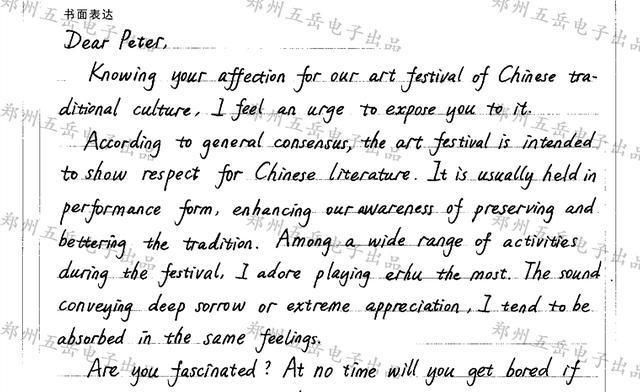 书面表达
Dear Peter,
Knowing your affection for our art festival of Chinese tra-
ditional culture, I feel an urge to expose you to it.
According to general consensus, the art festival is intended
to show respect for Chinese literature. It is usually held in
performance form, enhancing our awareness of preserving and
bettering the tradition. Among a wide range of activities
during the festival, I adore playing erhu the most. The sound
conveying deep sorrow or extreme appreciation, I tend to be
absorbed in the same feelings.
Are you fascinated? At no time will you get bored if
郑州五岳电子出品